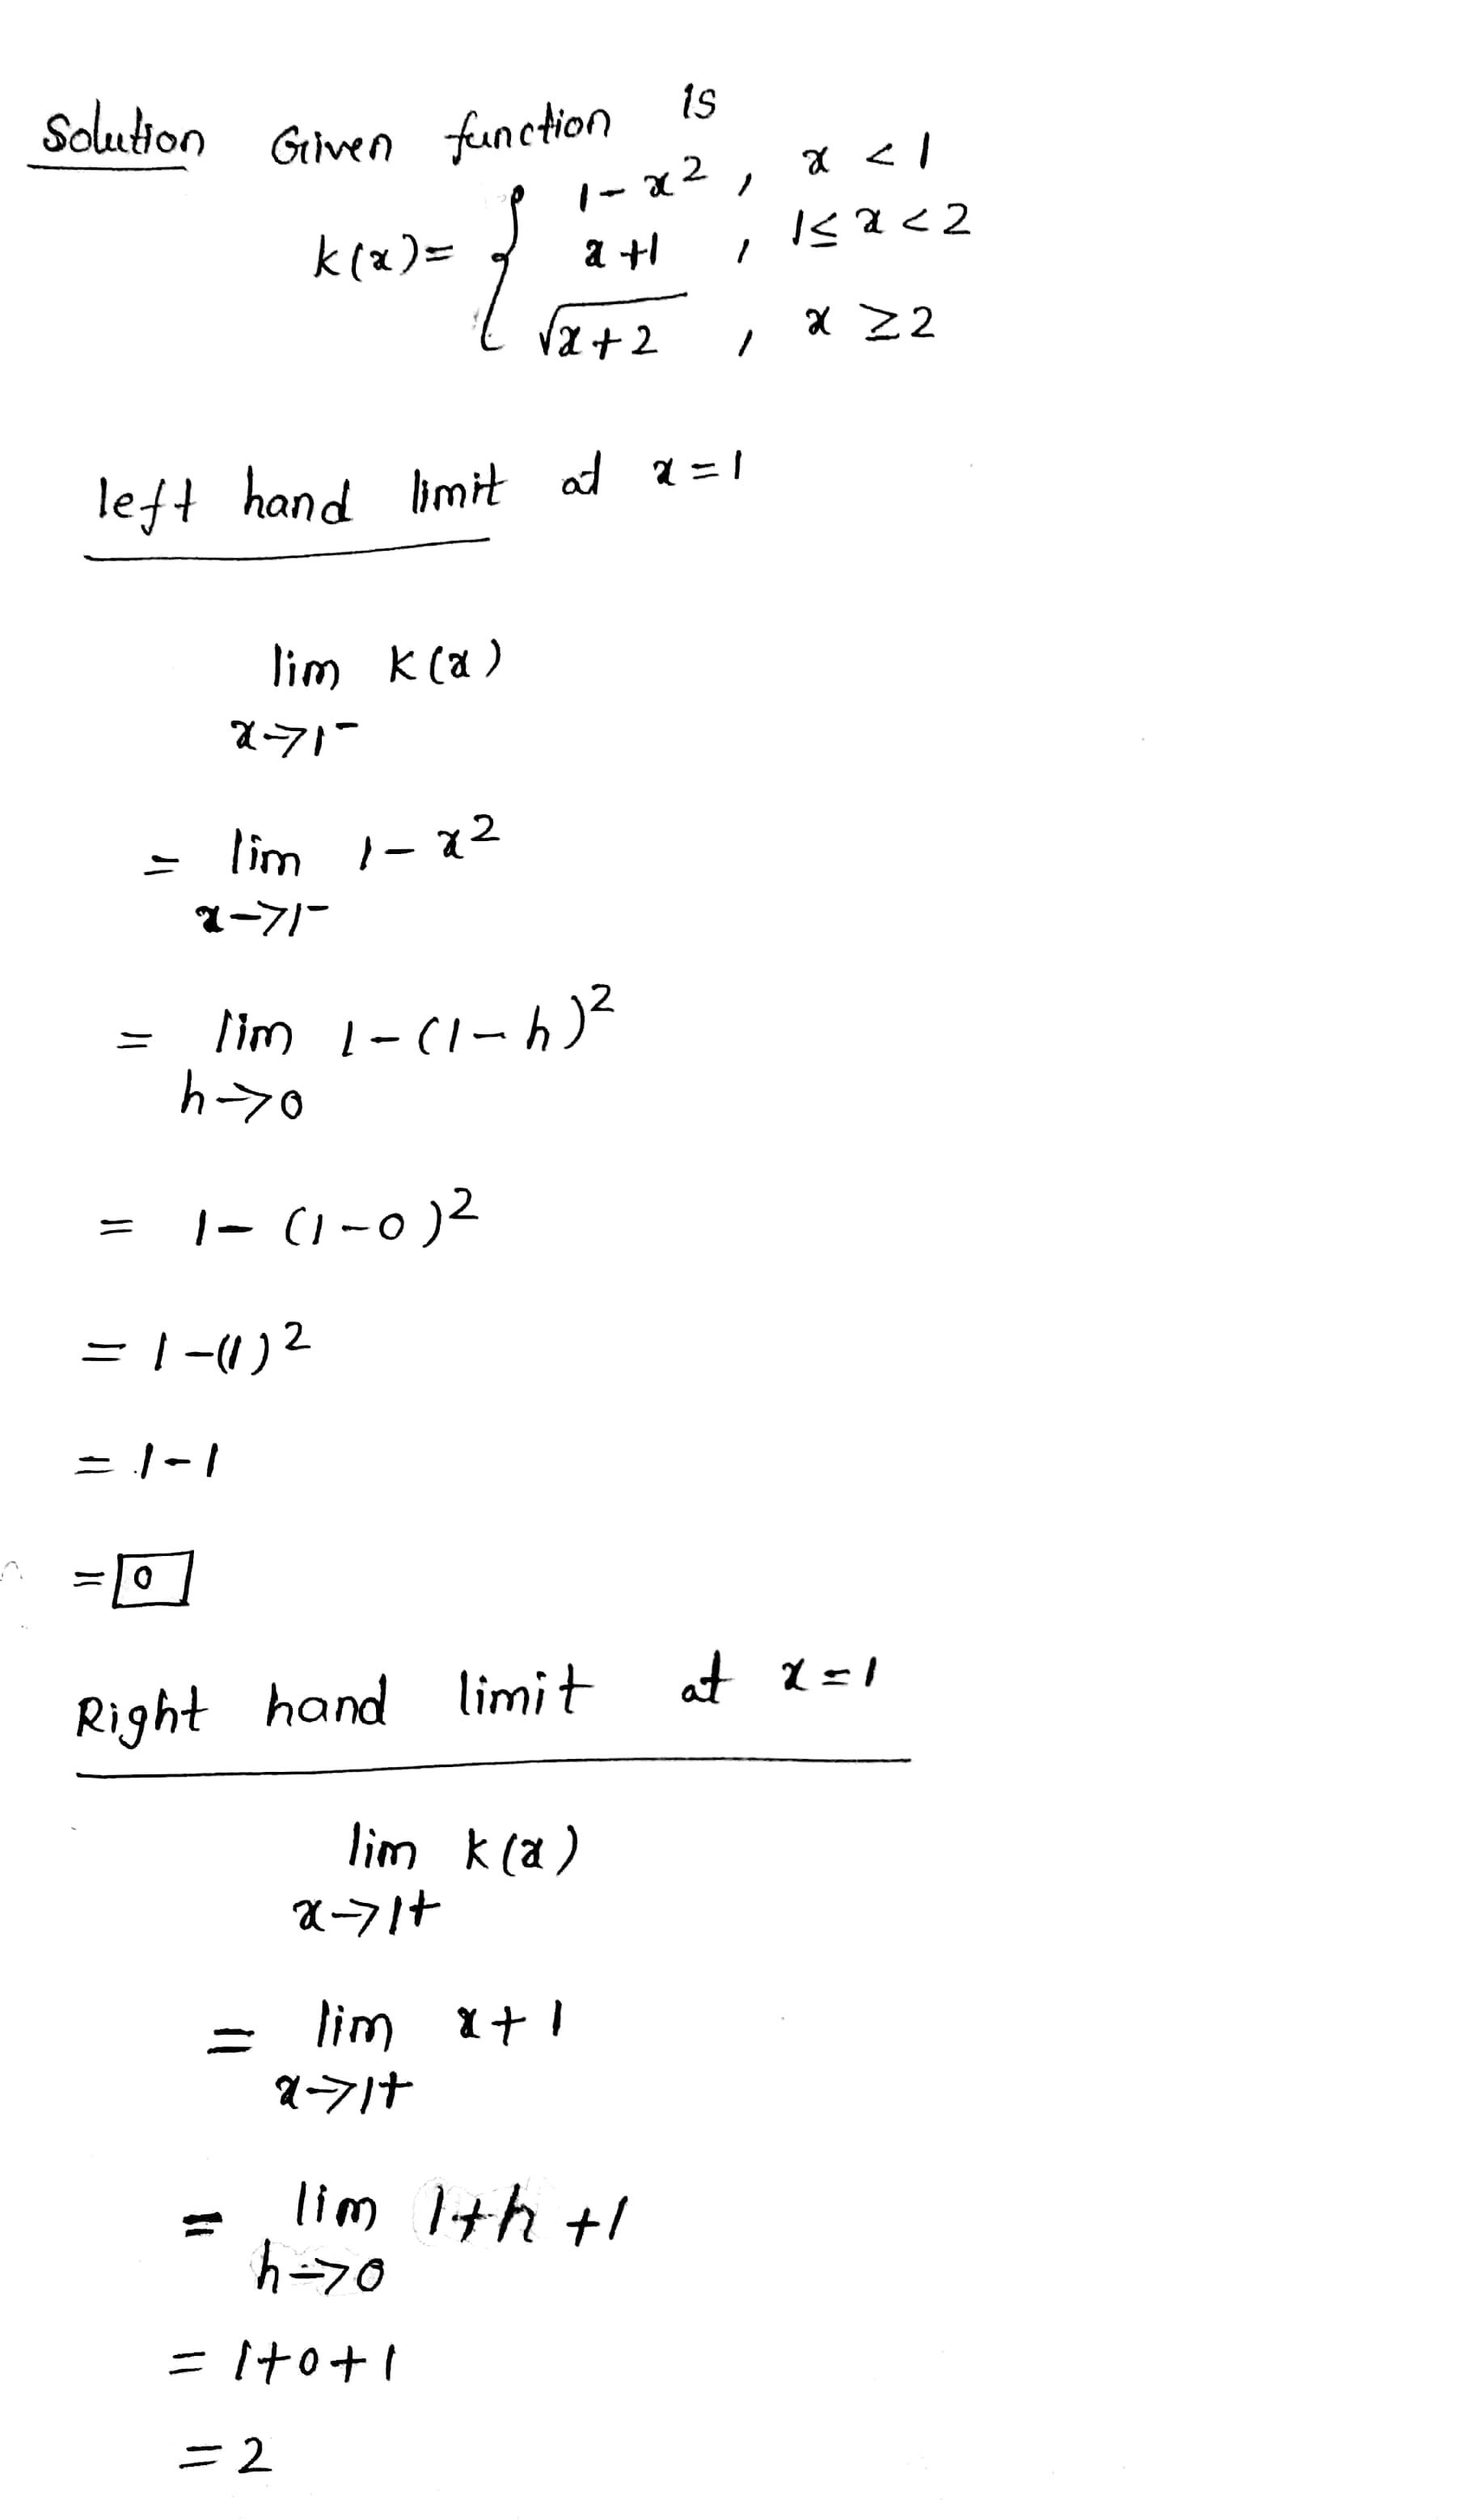 Solution Given function is
k(x)= { 1-x², x<1
x+1, 1≤x<2
√x+2, x≥2
left hand limit at x=1
lim k(x)
x→1⁻
= lim 1-x²
x→1⁻
= lim 1-(1-h)²
h→0
= 1-(1-0)²
= 1-(1)²
= 1-1
= 0
Right hand limit at x=1
lim k(x)
x→1+
= lim x+1
x→1+
= lim 1+h+1
h→0
= 1+0+1
= 2